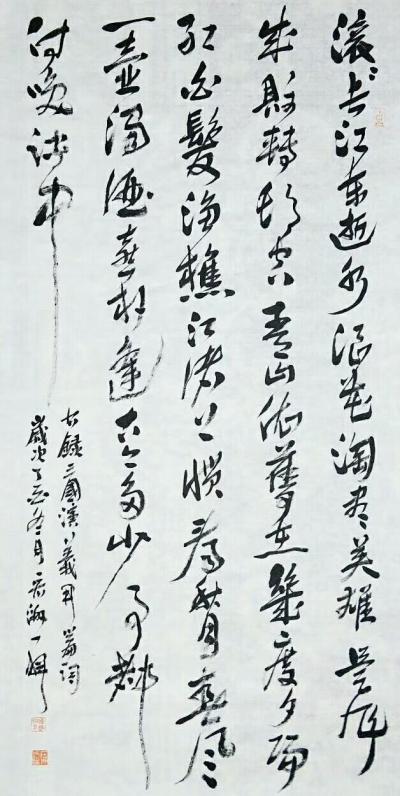 滚〻长江東逝水浪花淘尽英雄是非
成败轉头空青山依舊在幾度夕阳
红白髮渔樵江渚上惯看秋月春风
一壶濁酒喜相逢古今多少事都
付笑谈中
右録三國演義开篇词
歲次丁亥冬月